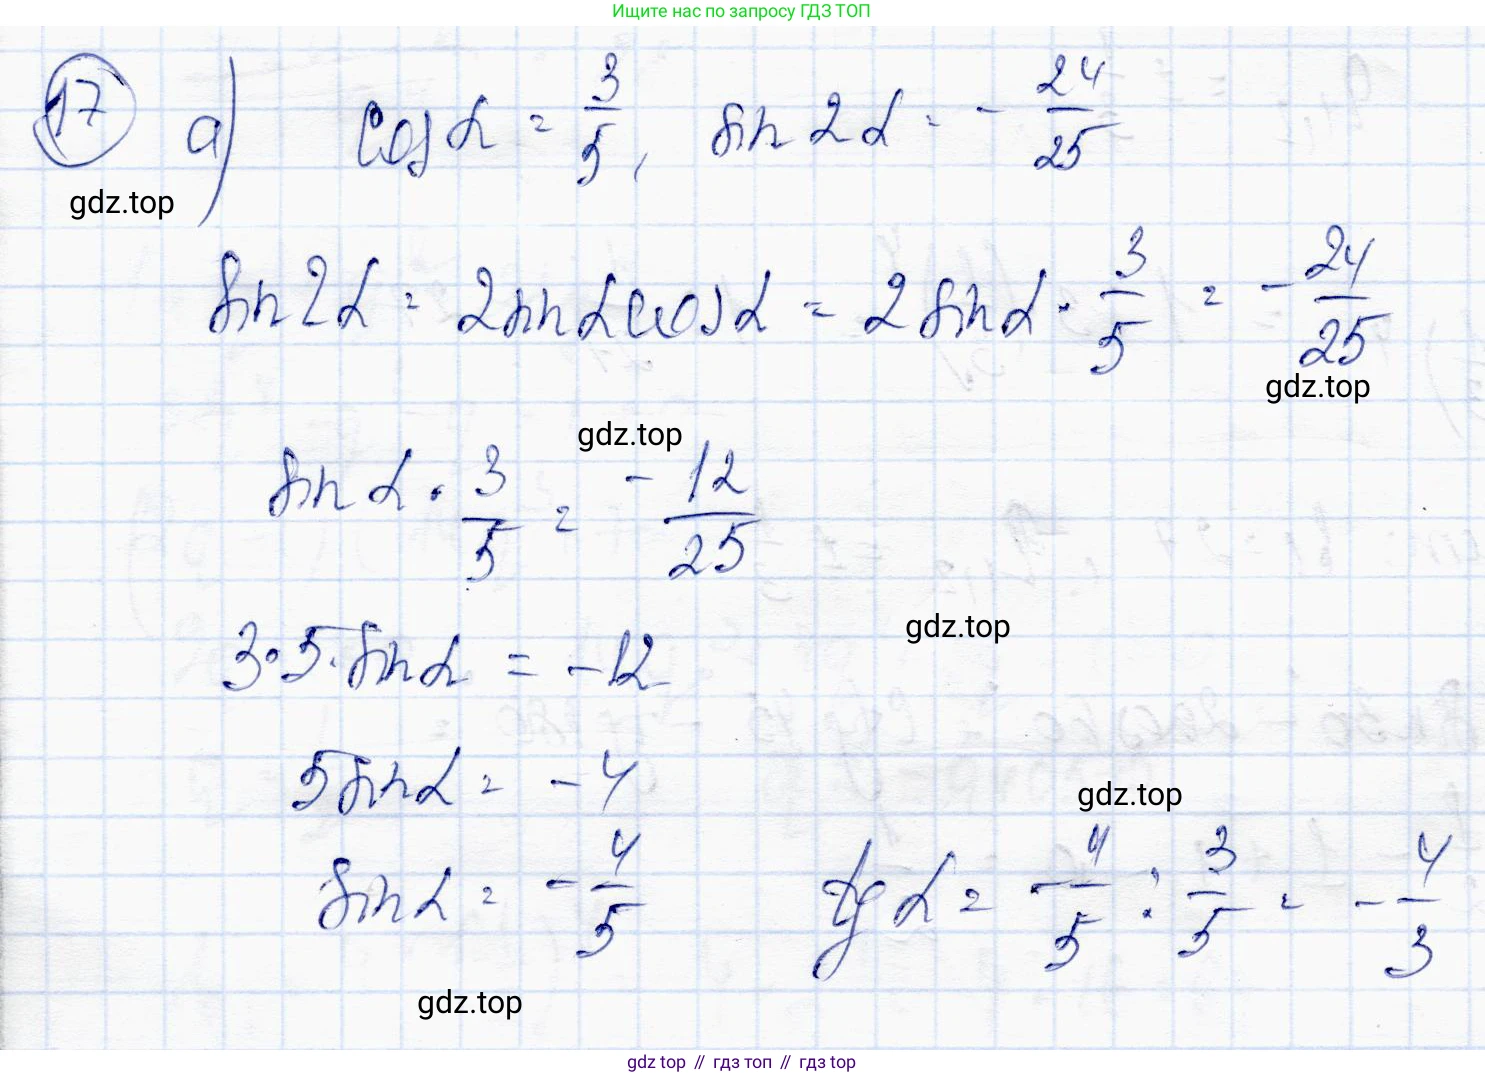 Ищите нас по запросу ГДЗ ТОП
17 а) cos α = 3/5, sin 2α = - 24/25
gdz.top
sin 2α = 2 sin α cos α = 2 sin α · 3/5 = - 24/25
gdz.top
gdz.top
sin α · 3/5 = - 12/25
gdz.top
3·5·sin α = -12
5 sin α = -4
gdz.top
sin α = - 4/5 tg α = - 4/5 : 3/5 = - 4/3
gdz.top
gdz top // гдз топ // gdz top